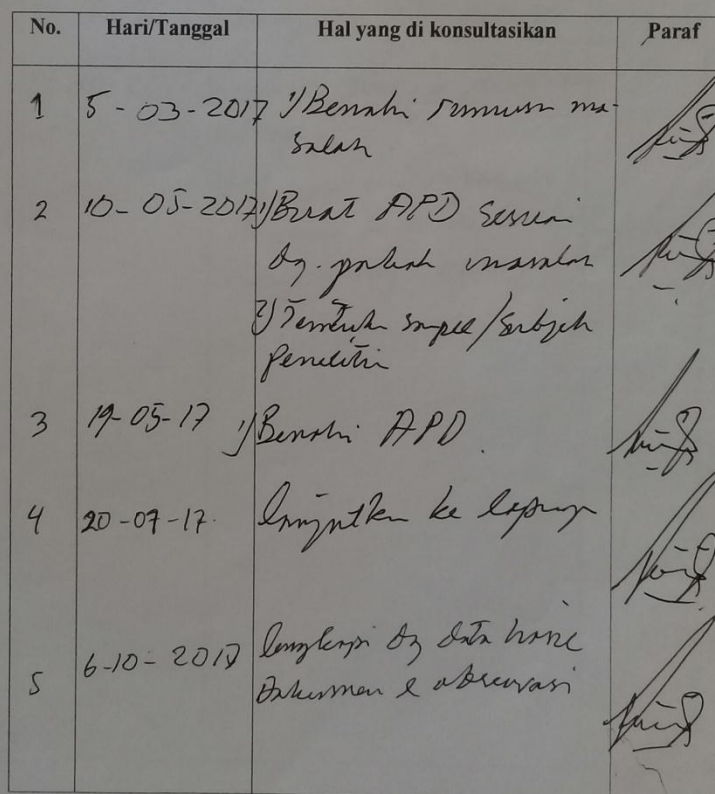 No. Hari/Tanggal Hal yang di konsultasikan Paraf
1 5-03-2017 1) Benahi rumusan ma-
salah
2 10-05-2017 1) Buat APD sesuai
dg. pokok masalah
2) Tentukan sampel/subjek
penelitian
3 19-05-17 1) Benahi APD.
4 20-07-17. lanjutkan ke lapangan
5 6-10-2017 lengkapi dg data hasil
dokumen & observasi